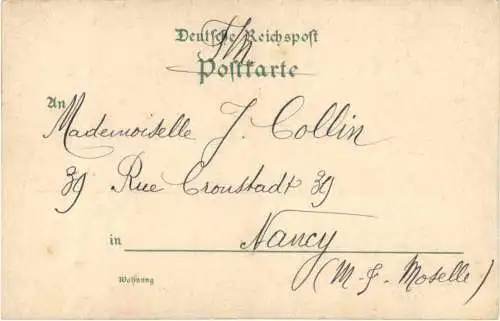 Deutsche Reichspost
Postkarte
An
Mademoiselle J. Collin
39 Rue Cronstadt 39
in Nancy
(M-&-Moselle)
Wohnung